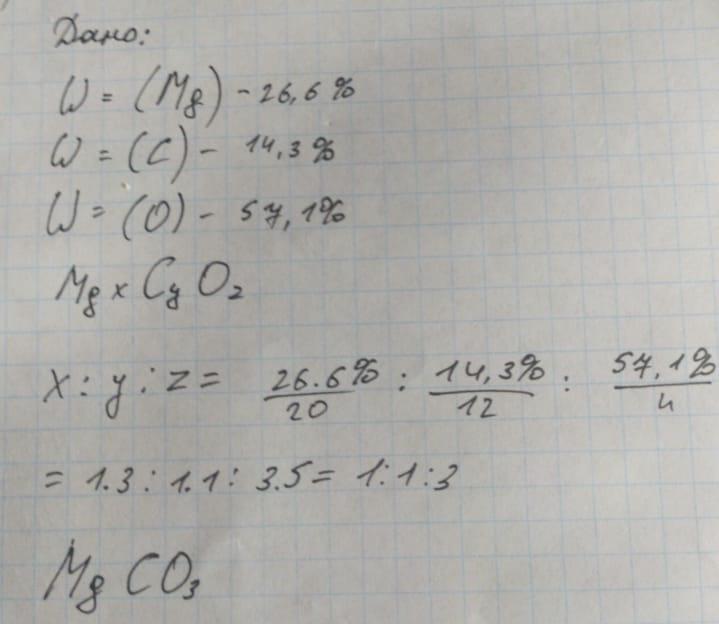 Дано:
W = (Mg) - 26,6%
W = (C) - 14,3%
W = (O) - 57,1%
Mgx Cy Oz
x : y : z = 26.6%/20 : 14,3%/12 : 57,1%/4
= 1.3 : 1.1 : 3.5 = 1:1:3
MgCO3